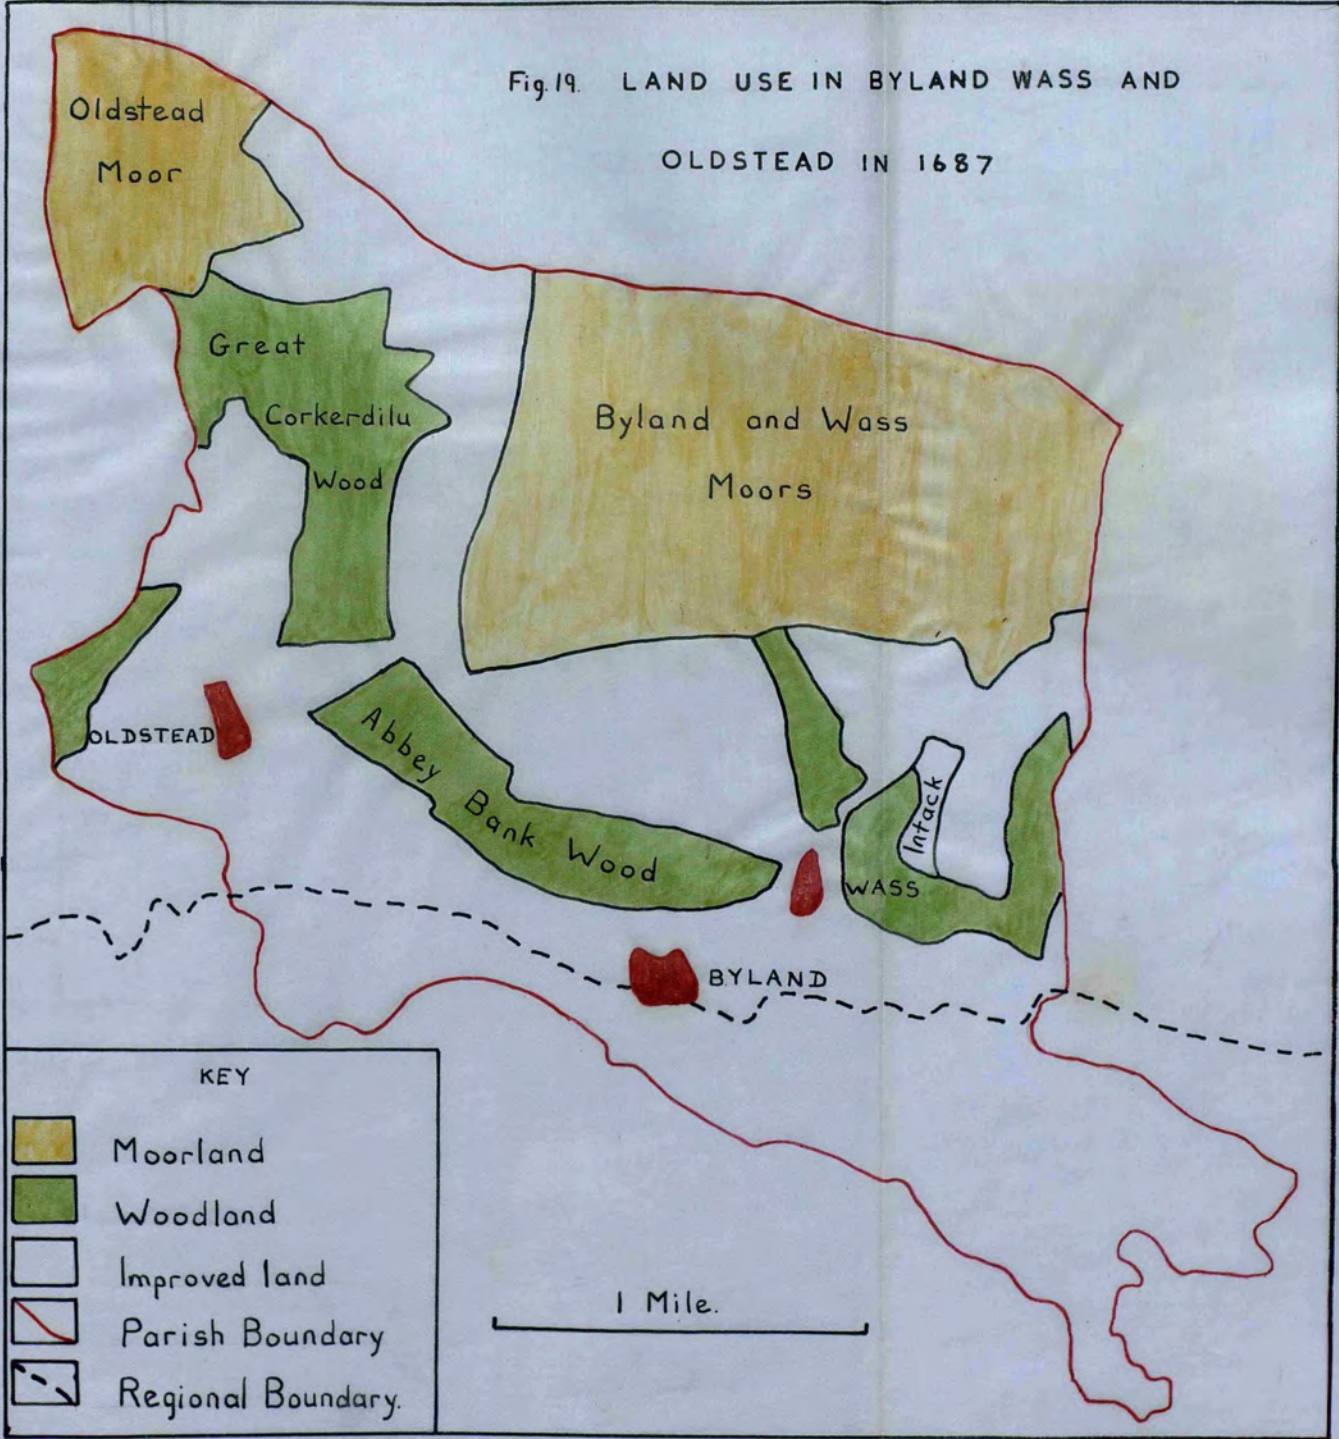 Fig. 19. LAND USE IN BYLAND WASS AND
OLDSTEAD IN 1687
Oldstead
Moor
Great
Corkerdilu
Wood
Byland and Wass
Moors
OLDSTEAD
Abbey Bank Wood
Intack
WASS
BYLAND
KEY
Moorland
Woodland
Improved land
Parish Boundary
Regional Boundary.
1 Mile.